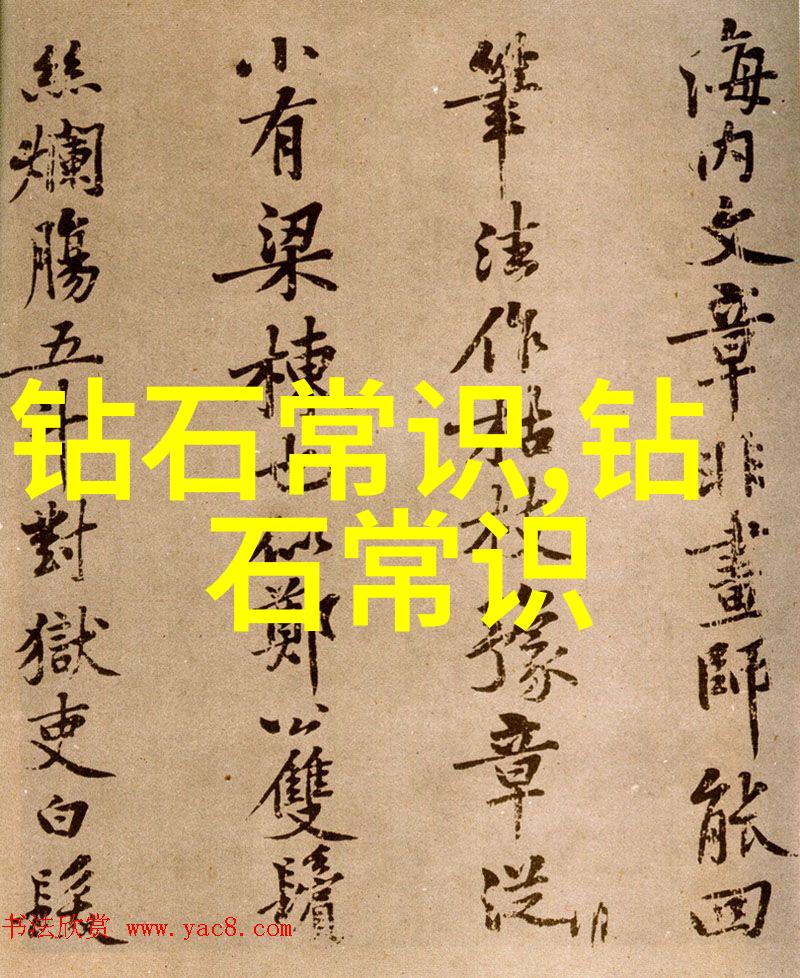 海内文章非畫師能回
筆法作枯枝豫章從
小有梁棟也似鄭公雙鬢
絲爛腸五斗對獄吏白髮
钻石常识,钻
石常识
书法欣赏 www.yac8.com